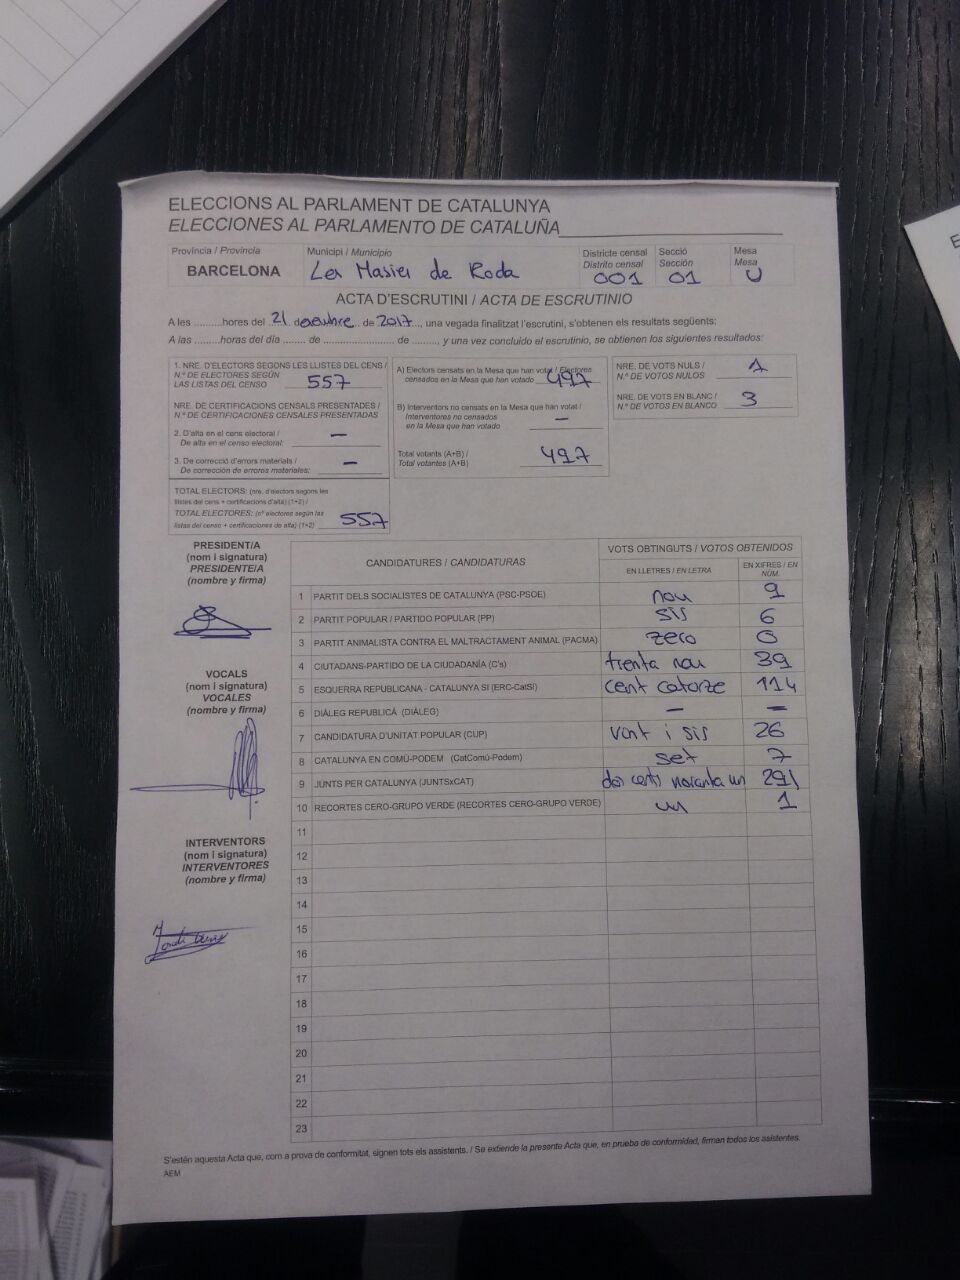 ELECCIONS AL PARLAMENT DE CATALUNYA
ELECCIONES AL PARLAMENTO DE CATALUÑA
Província / Provincia
BARCELONA
Municipi / Municipio
Les Masies de Roda
Districte censal
Distrito censal
001
Secció
Sección
01
Mesa
Mesa
U
ACTA D'ESCRUTINI / ACTA DE ESCRUTINIO
A les .........hores del 21 desembre de 2017, una vegada finalitzat l'escrutini, s'obtenen els resultats següents:
A las .........horas del día ....... de ........................ de ........, y una vez concluido el escrutinio, se obtienen los siguientes resultados:
1. NRE. D'ELECTORS SEGONS LES LLISTES DEL CENS /
N.º DE ELECTORES SEGÚN
LAS LISTAS DEL CENSO 557
NRE. DE CERTIFICACIONS CENSALS PRESENTADES /
N.º DE CERTIFICACIONES CENSALES PRESENTADAS
2. D'alta en el cens electoral /
De alta en el censo electoral: –
3. De correcció d'errors materials /
De corrección de errores materiales: –
TOTAL ELECTORS: (nre. d'electors segons les
llistes del cens + certificacions d'alta) (1+2) /
TOTAL ELECTORES: (nº electores según las
listas del censo + certificaciones de alta) (1+2) 557
A) Electors censats en la Mesa que han votat / Electores
censados en la Mesa que han votado 497
B) Interventors no censats en la Mesa que han votat /
Interventores no censados
en la Mesa que han votado –
Total votants (A+B) /
Total votantes (A+B) 497
NRE. DE VOTS NULS /
N.º DE VOTOS NULOS 1
NRE. DE VOTS EN BLANC /
N.º DE VOTOS EN BLANCO 3
PRESIDENT/A
(nom i signatura)
PRESIDENTE/A
(nombre y firma)
VOCALS
(nom i signatura)
VOCALES
(nombre y firma)
INTERVENTORS
(nom i signatura)
INTERVENTORES
(nombre y firma)
CANDIDATURES / CANDIDATURAS
VOTS OBTINGUTS / VOTOS OBTENIDOS
EN LLETRES / EN LETRA
EN XIFRES / EN NÚM.
1 PARTIT DELS SOCIALISTES DE CATALUNYA (PSC-PSOE) nou 9
2 PARTIT POPULAR / PARTIDO POPULAR (PP) sis 6
3 PARTIT ANIMALISTA CONTRA EL MALTRACTAMENT ANIMAL (PACMA) zero 0
4 CIUTADANS-PARTIDO DE LA CIUDADANÍA (C's) trenta nou 39
5 ESQUERRA REPUBLICANA - CATALUNYA SÍ (ERC-CatSí) cent catorze 114
6 DIÀLEG REPUBLICÀ (DIÀLEG) – –
7 CANDIDATURA D'UNITAT POPULAR (CUP) vint i sis 26
8 CATALUNYA EN COMÚ-PODEM (CatComú-Podem) set 7
9 JUNTS PER CATALUNYA (JUNTSxCAT) dos cents noranta un 291
10 RECORTES CERO-GRUPO VERDE (RECORTES CERO-GRUPO VERDE) un 1
11
12
13
14
15
16
17
18
19
20
21
22
23
S'estén aquesta Acta que, com a prova de conformitat, signen tots els assistents. / Se extiende la presente Acta que, en prueba de conformidad, firman todos los asistentes.
AEM